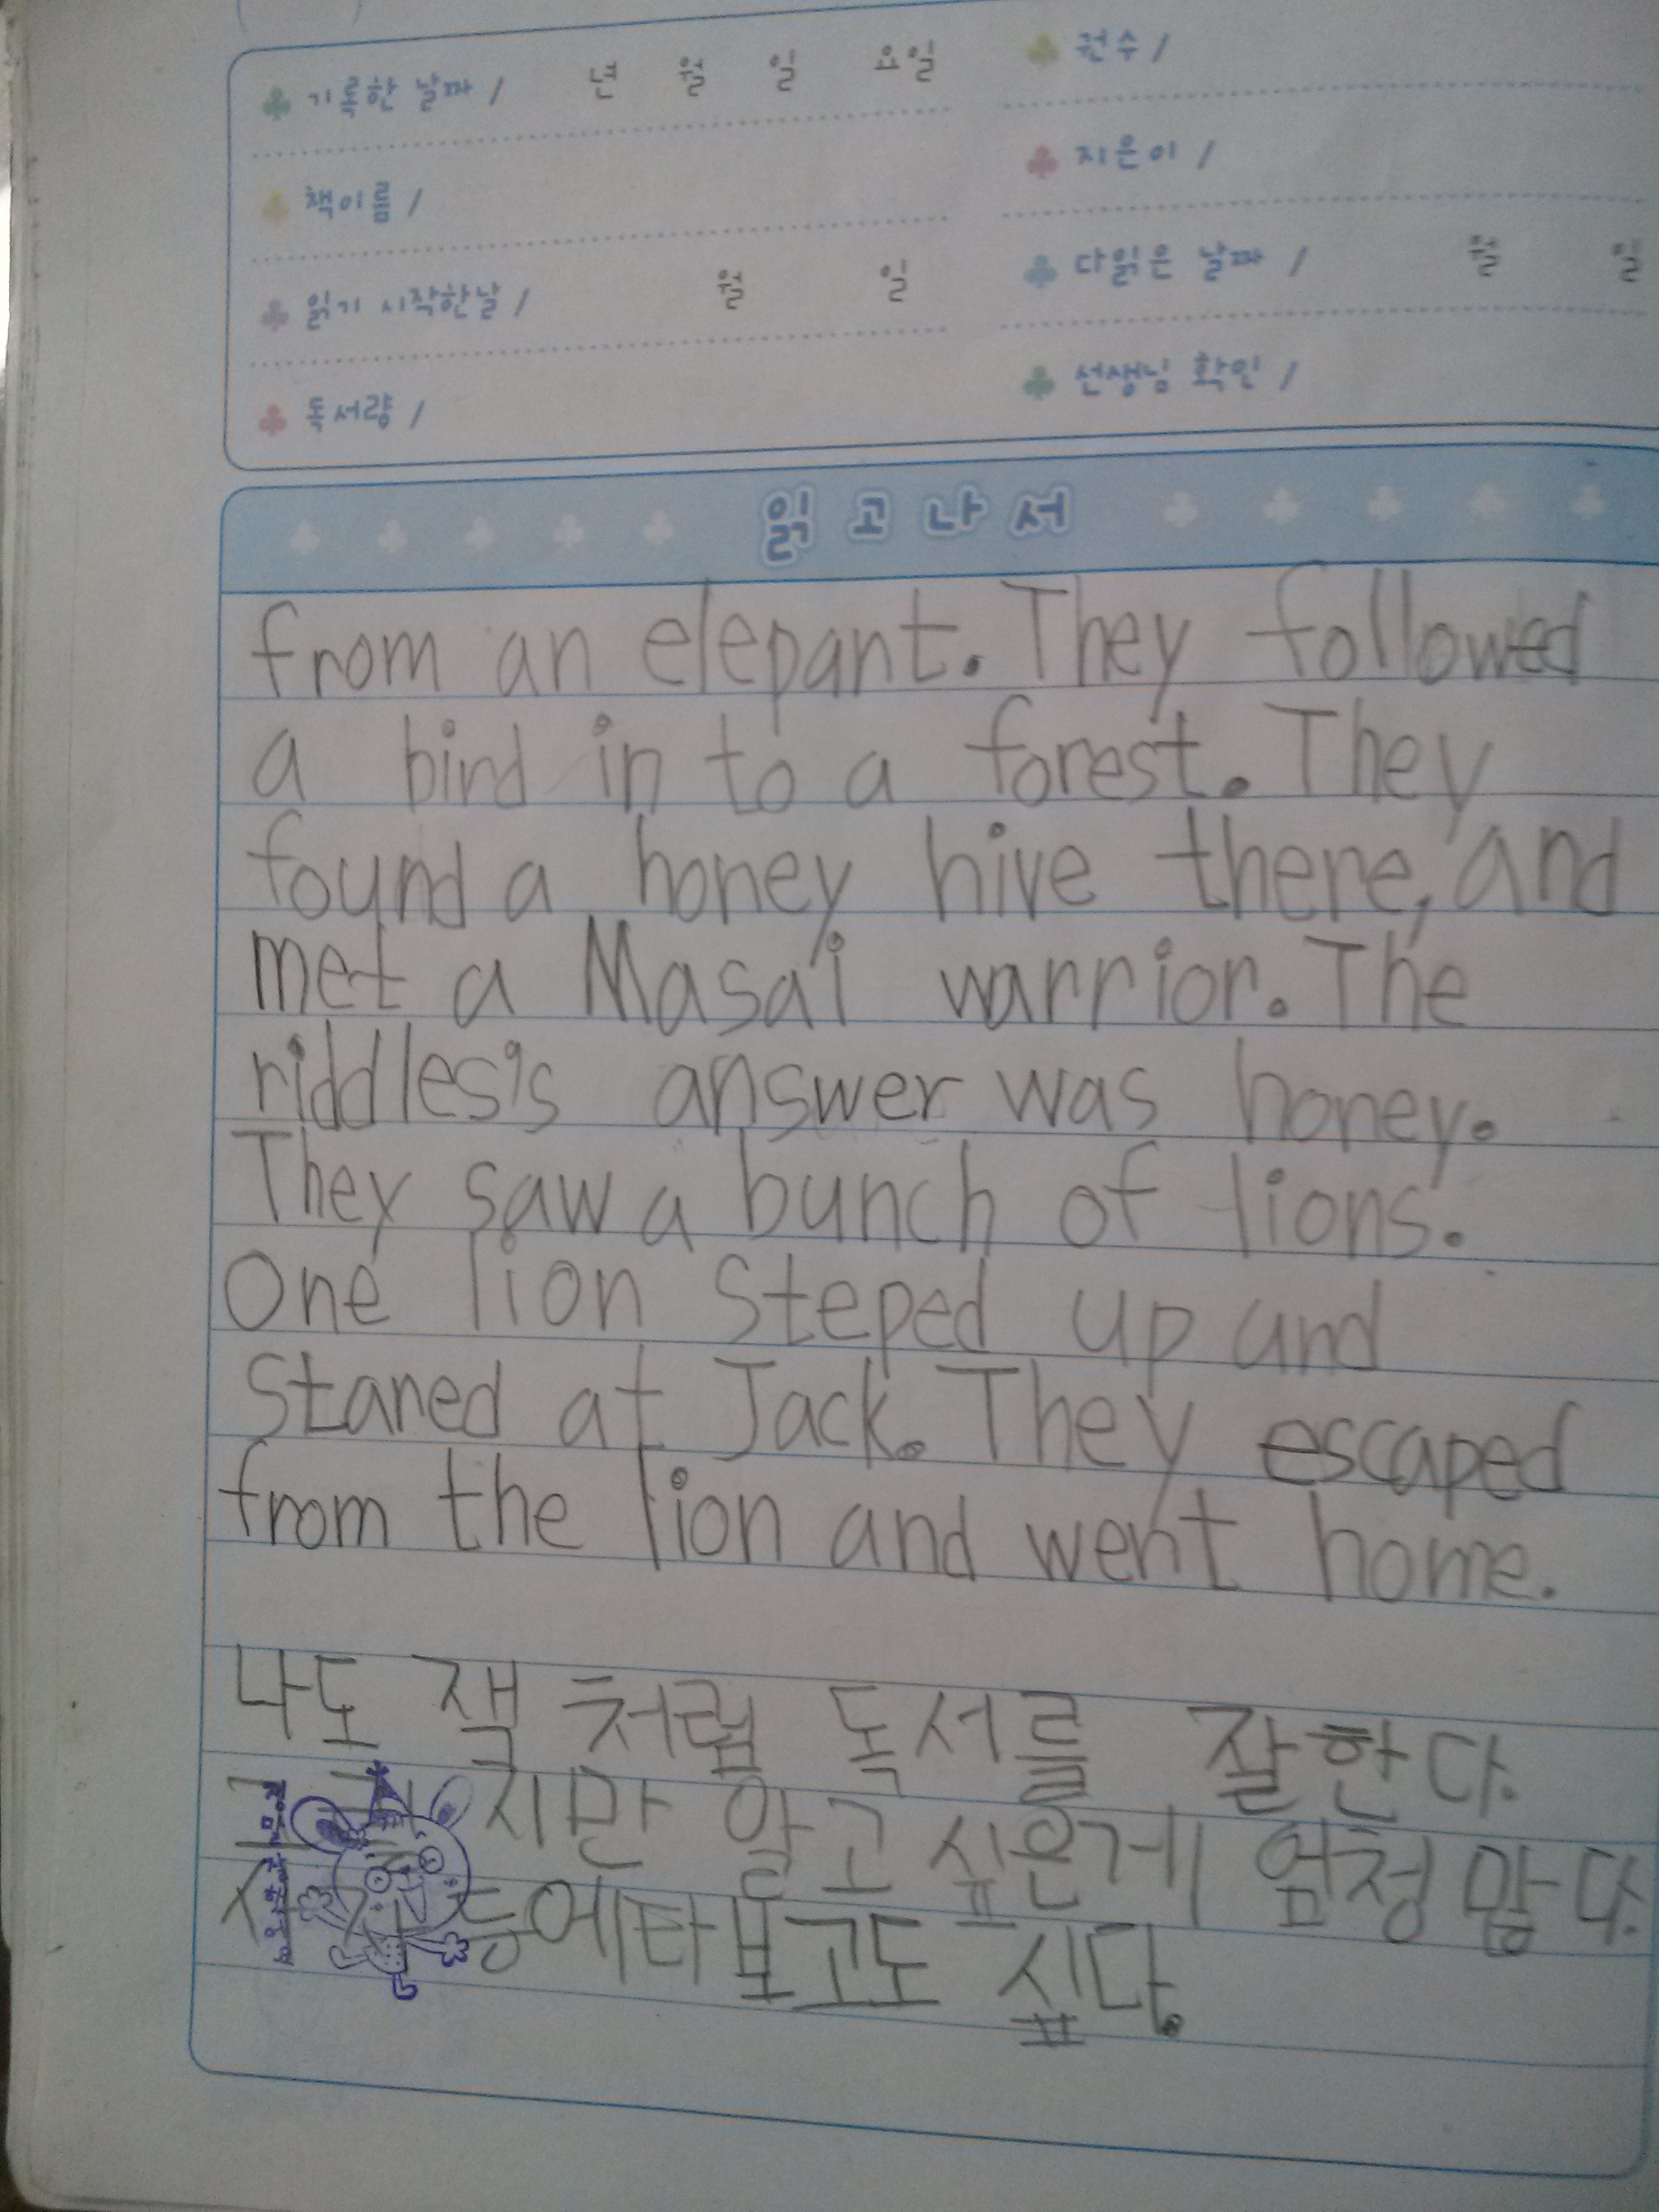 기록한 날짜 / 년 월 일 요일
권수 /
책이름 /
지은이 /
읽기 시작한날 / 월 일
다읽은 날짜 / 월 일
독서량 /
선생님 확인 /
읽고나서
from an elepant. They followed
a bird in to a forest. They
found a honey hive there, and
met a Masai warrior. The
riddles's answer was honey.
They saw a bunch of lions.
One lion steped up and
stared at Jack. They escaped
from the lion and went home.
나도 잭 처럼 독서를 잘한다.
지만 알고 싶은게 엄청 많다.
등에타보고도 싶다.